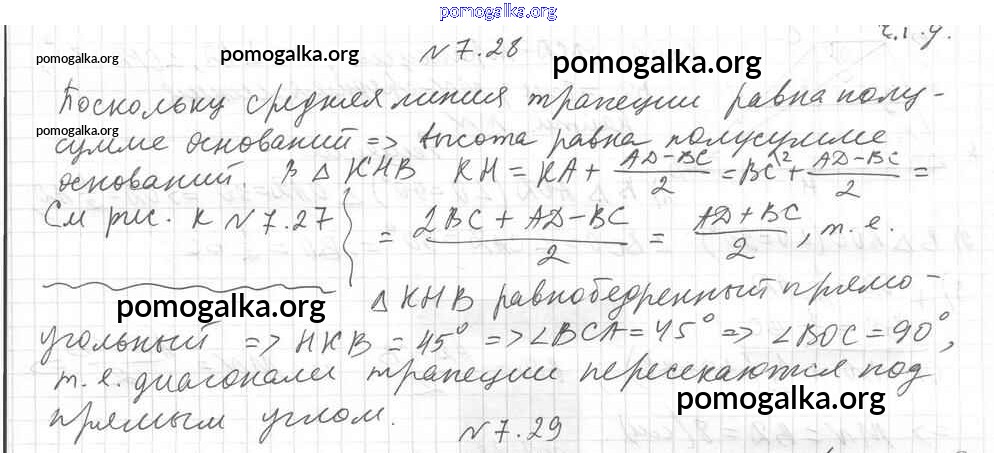 pomogalka.org
ч.т.д.
N 7.28
pomogalka.org pomogalka.org pomogalka.org
Поскольку средняя линия трапеции равна полу-
pomogalka.org
сумме оснований => высота равна полусумме
оснований В Δ KHB KH = KA + (AD-BC)/2 = BC^\2 + (AD-BC)/2 =
См рис. к N 7.27 = (2BC + AD - BC)/2 = (AD + BC)/2, т.е.
pomogalka.org
Δ KHB равнобедренный прямо-
угольный => HKB = 45° => ∠BCA = 45° => ∠BOC = 90°,
т.е. диагонали трапеции пересекаются под
pomogalka.org
прямым углом.
N 7.29